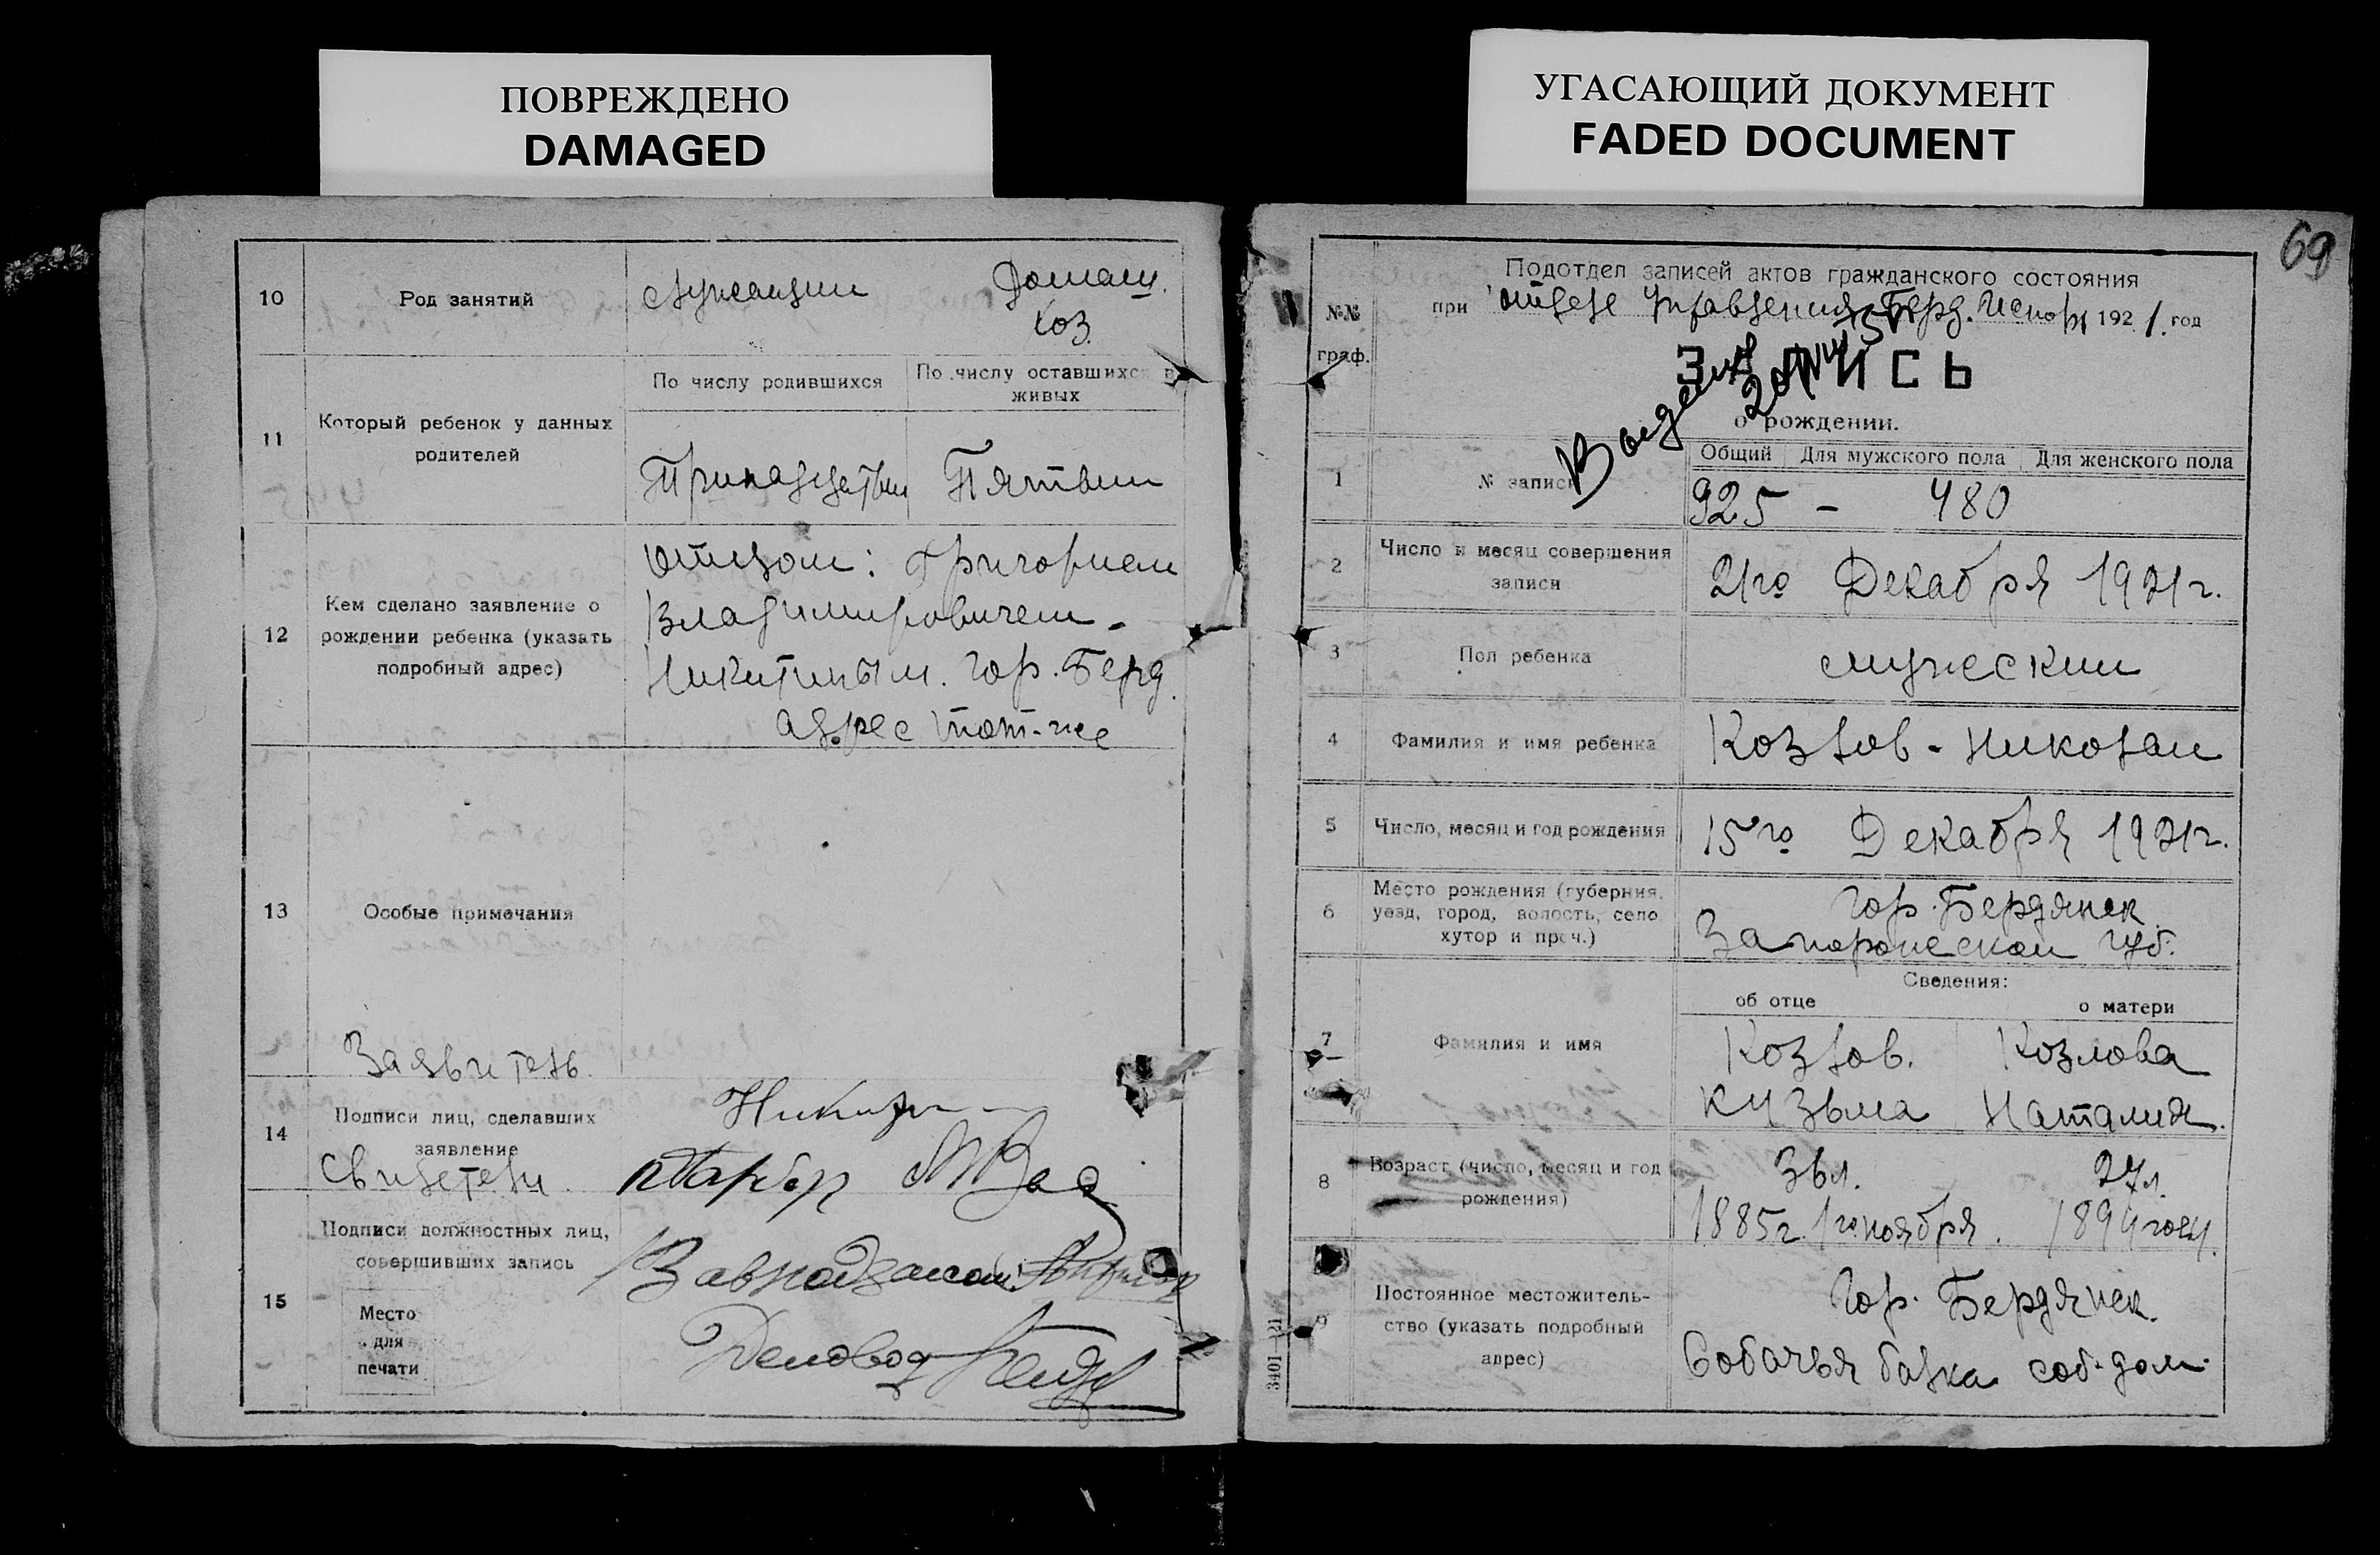 ПОВРЕЖДЕНО
DAMAGED
УГАСАЮЩИЙ ДОКУМЕНТ
FADED DOCUMENT
10
Род занятий
служащий
Домаш.
хоз.
11
Который ребенок у данных
родителей
По числу родившихся
По числу оставшихся в
живых
Тринадцатый
Пятый
12
Кем сделано заявление о
рождении ребенка (указать
подробный адрес)
Отцом: Григорием
Владимировичем
Никитиным. гор. Берд.
адрес тот-же
13
Особые примечания
Заявитель
14
Подписи лиц, сделавших
заявление
Свидетели
15
Подписи должностных лиц,
совершивших запись
Деловод
Место
для
печати
69
№№
граф.
Подотдел записей актов гражданского состояния
при отделе Управления Берд. 1921 год
ЗАПИСЬ
о рождении.
1
№ записи
Общий
Для мужского пола
Для женского пола
925 - 480
2
Число и месяц совершения
записи
21го Декабря 1921г.
3
Пол ребенка
мужеский
4
Фамилия и имя ребенка
Козлов - Николай
5
Число, месяц и год рождения
15го Декабря 1921г.
6
Место рождения (губерния,
уезд, город, волость, село
хутор и проч.)
гор. Бердянск
Запорожской губ.
Сведения:
об отце
о матери
7
Фамилия и имя
Козлов.
Кузьма
Козлова
Наталия.
8
Возраст (число, месяц и год
рождения)
36л.
1885г. 1го ноября.
27л.
1894 году.
9
Постоянное местожитель-
ство (указать подробный
адрес)
Гор. Бердянск.
Собачья балка соб. дом
3401—21